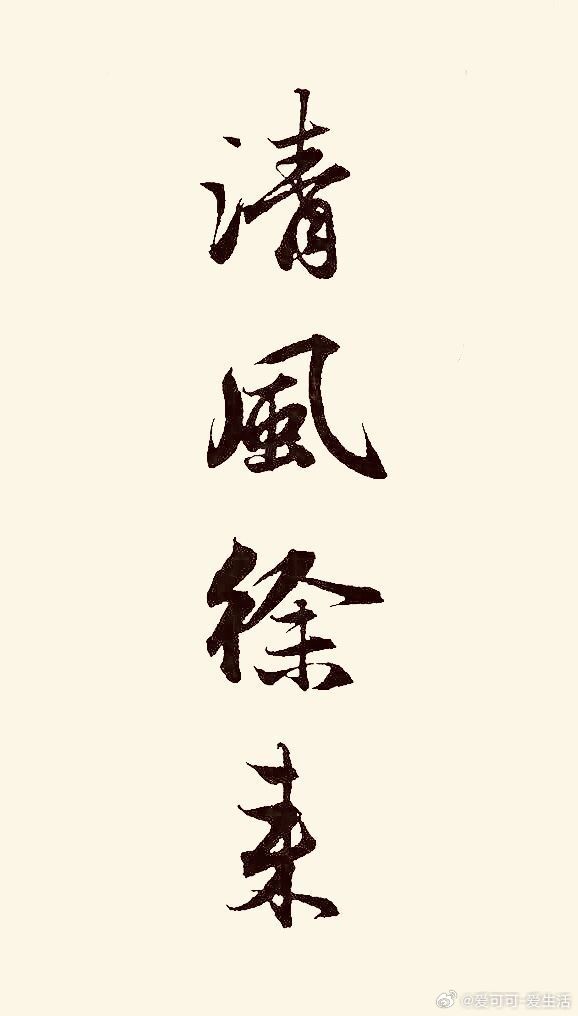 清風徐来
@爱可可-爱生活